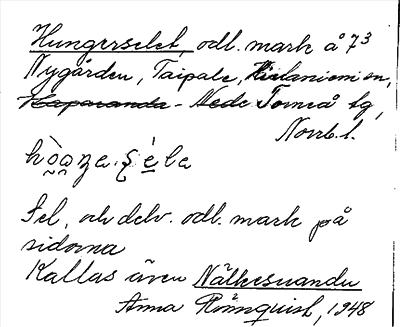 Hungerselet, odl. mark å 7³
Nygården, Taipale, Hietaniemi sn,
Haparanda - Nede Torneå tg,
Norrb. l.
Sel, och delv. odl. mark på
sidorna
Kallas även Nälkesuando
Anna Rönnquist, 1948